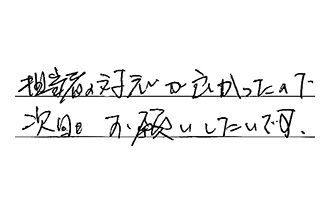 担当者の対応が良かったので
次回もお願いしたいです。